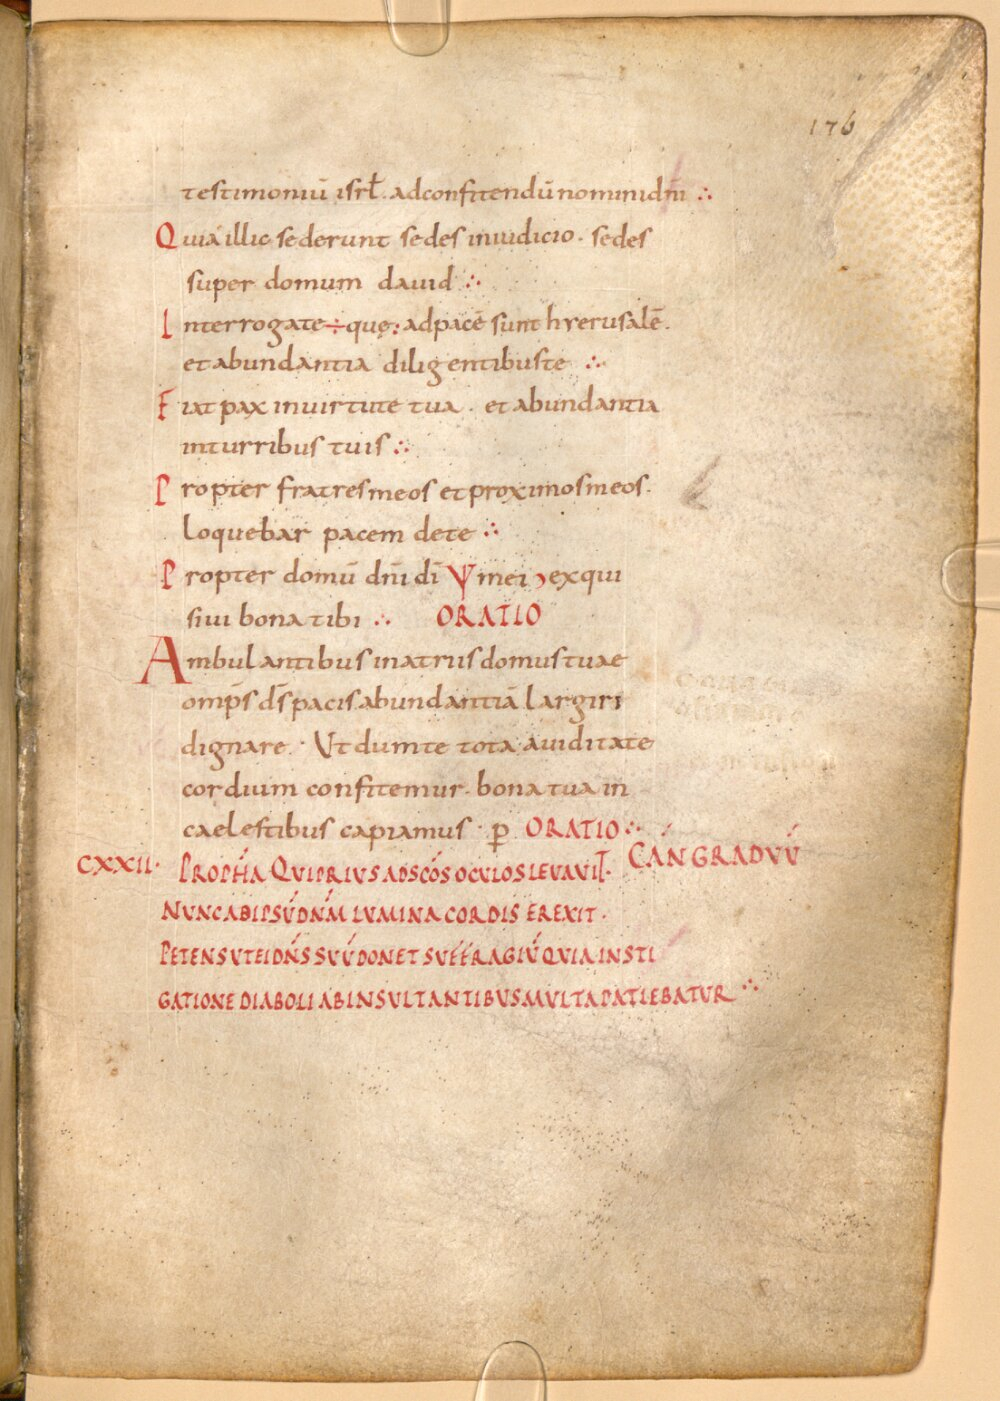 176
testimoniū isrł. adconfitendū nominidñi ∴
Quia illic sederunt sedes iniudicio. sedes
super domum dauid ∴
Interrogate ÷ quę: adpacē sunt hyerusalē.
et abundantia diligentibuste ∴
Fiat pax inuirtute tua. et abundantia
inturribus tuis ∴
Propter fratresmeos et proximosmeos.
loquebar pacem dete ∴
Propter domū dñi dī Ψ mei exqui
siui bona tibi ∴ ORATIO
Ambulantibus inatriis domus tuae
omp̄s d̄s pacis abundantiā largiri
dignare. Ut dumte tota auiditate
cordium confitemur. bona tua in
caelestibus capiamus. p̄ ORATIO ∴
CXXII. PROPH̄A QUI PRIUS AD SCŌS OCULOS LEVAUIT. CAN GRADVŪ
NUNC AB IPSŪ DÑM LUMINA CORDIS EREXIT.
PETENS UT EI DÑS SUŪ DONET SUFFRAGIŪ QUIA INSTI
GATIONE DIABOLI AB INSULTANTIBUS MULTA PATIEBATUR ∴